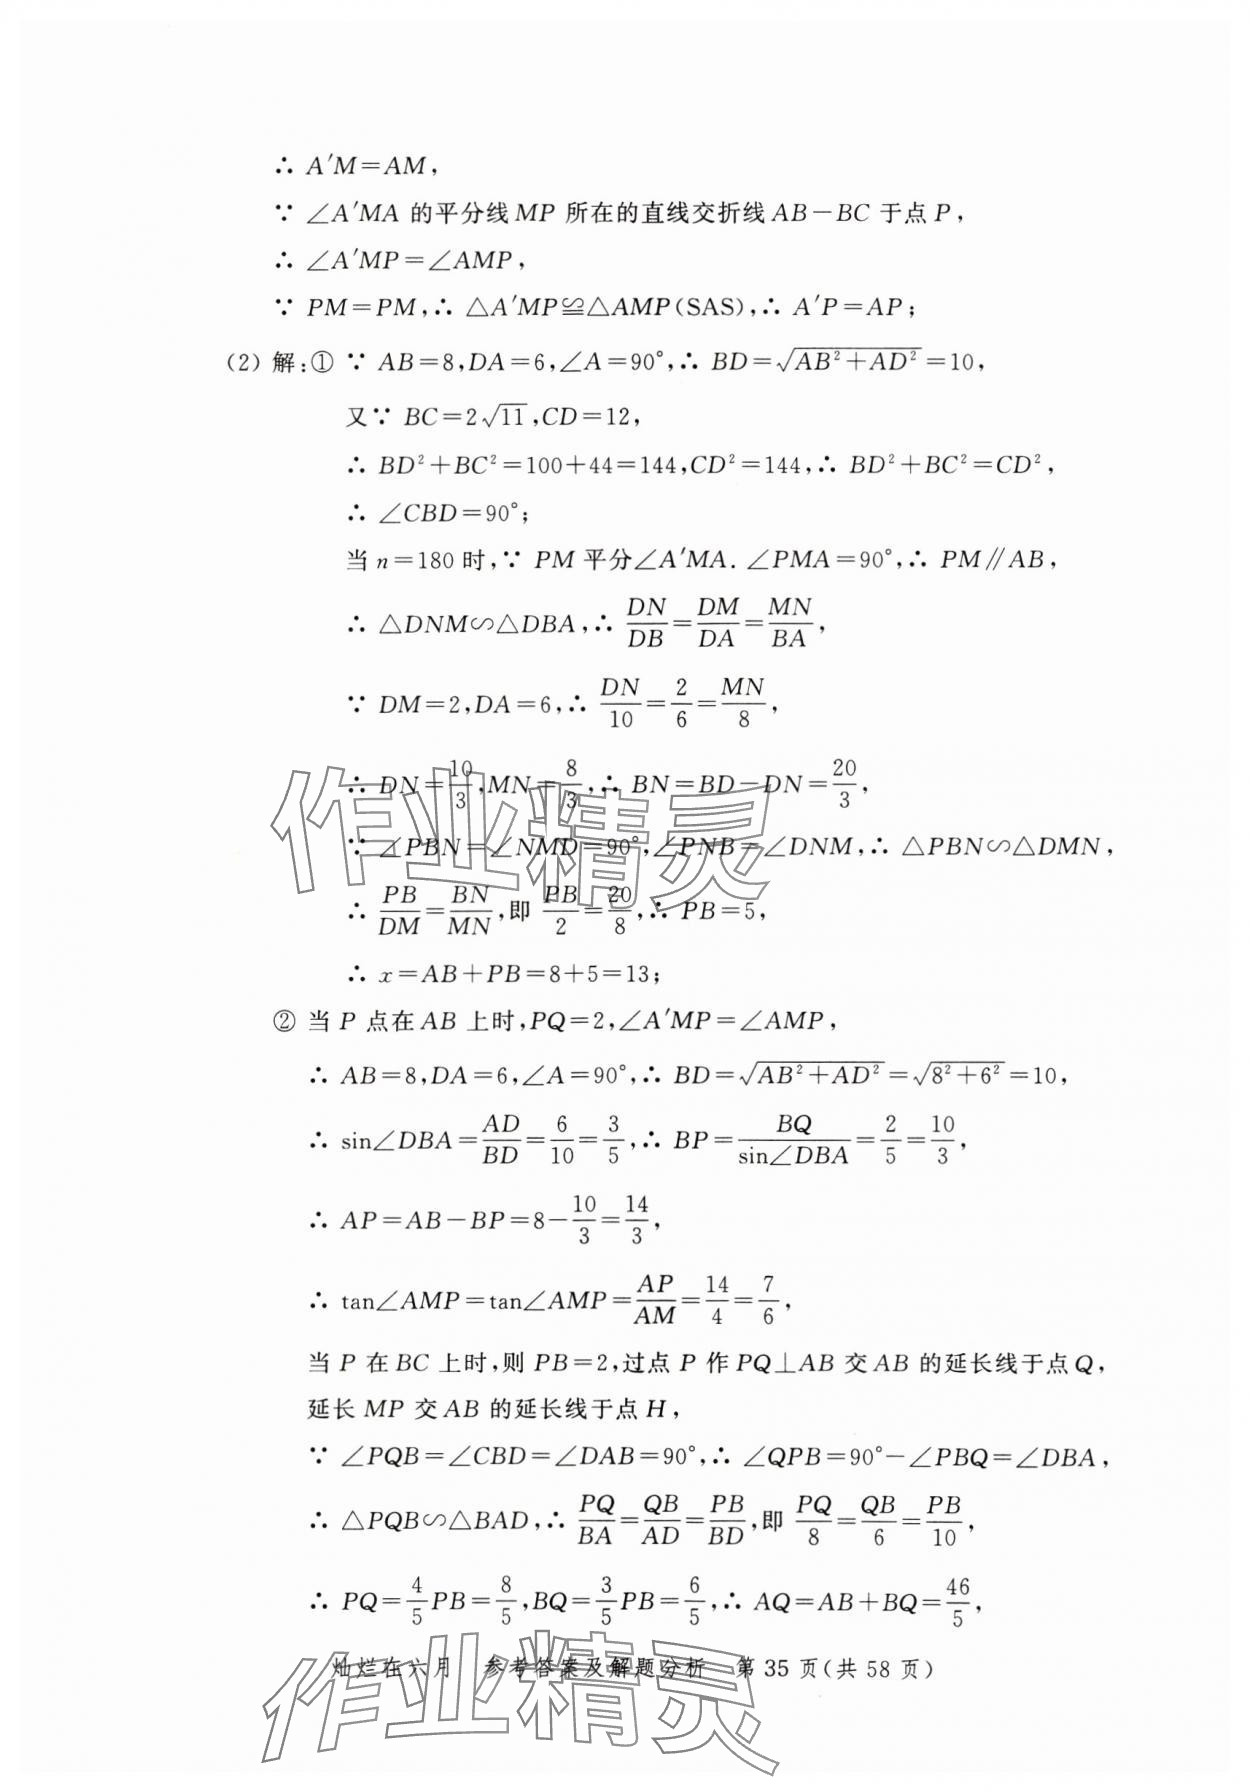 ∴ A′M=AM,
∵ ∠A′MA 的平分线 MP 所在的直线交折线 AB-BC 于点 P,
∴ ∠A′MP=∠AMP,
∵ PM=PM,∴ △A′MP≌△AMP(SAS),∴ A′P=AP;
(2) 解:① ∵ AB=8,DA=6,∠A=90°,∴ BD=√(AB²+AD²)=10,
又∵ BC=2√11,CD=12,
∴ BD²+BC²=100+44=144,CD²=144,∴ BD²+BC²=CD²,
∴ ∠CBD=90°;
当 n=180 时,∵ PM 平分∠A′MA. ∠PMA=90°,∴ PM∥AB,
∴ △DNM∽△DBA,∴ DN/DB=DM/DA=MN/BA,
∵ DM=2,DA=6,∴ DN/10=2/6=MN/8,
∴ DN=10/3,MN=8/3,∴ BN=BD-DN=20/3,
∵ ∠PBN=∠NMD=90°,∠PNB=∠DNM,∴ △PBN∽△DMN,
∴ PB/DM=BN/MN,即 PB/2=20/8,∴ PB=5,
∴ x=AB+PB=8+5=13;
② 当 P 点在 AB 上时,PQ=2,∠A′MP=∠AMP,
∴ AB=8,DA=6,∠A=90°,∴ BD=√(AB²+AD²)=√(8²+6²)=10,
∴ sin∠DBA=AD/BD=6/10=3/5,∴ BP=BQ/sin∠DBA=2/5=10/3,
∴ AP=AB-BP=8-10/3=14/3,
∴ tan∠AMP=tan∠AMP=AP/AM=14/4=7/6,
当 P 在 BC 上时,则 PB=2,过点 P 作 PQ⊥AB 交 AB 的延长线于点 Q,
延长 MP 交 AB 的延长线于点 H,
∵ ∠PQB=∠CBD=∠DAB=90°,∴ ∠QPB=90°-∠PBQ=∠DBA,
∴ △PQB∽△BAD,∴ PQ/BA=QB/AD=PB/BD,即 PQ/8=QB/6=PB/10,
∴ PQ=4/5PB=8/5,BQ=3/5PB=6/5,∴ AQ=AB+BQ=46/5,
灿烂在六月 参考答案及解题分析 第 35 页(共 58 页)
作业精灵
作业精灵